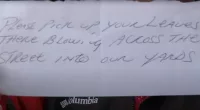 Please Pick up your leaves
THERE Blowing ACROSS THE
STREET INTO our YARDS
Columbia